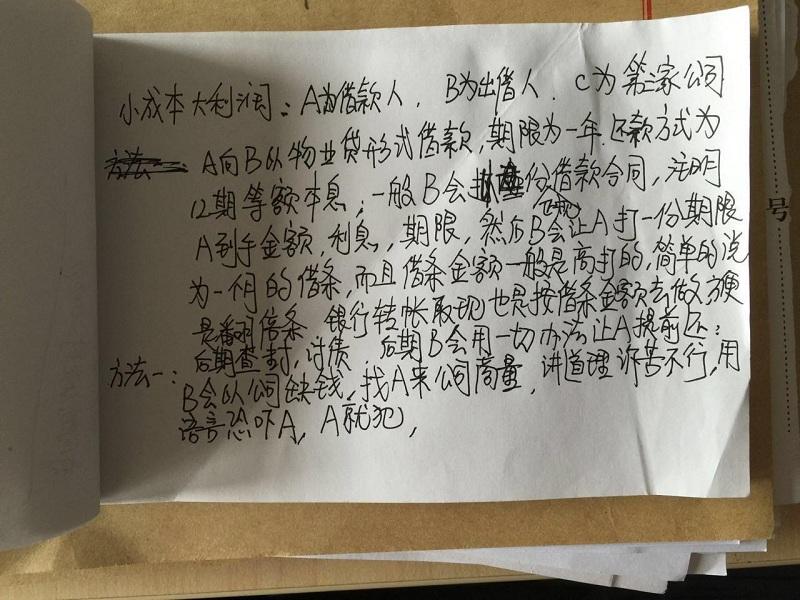 小成本大利润：A为借款人，B为出借人，C为第三家公司
A向B以物业贷形式借款，期限为一年，还款方式为
12期等额本息，一般B会 份借款合同，注明
A到手金额，利息，期限，然后B会让A打一份期限
为一个月的借条，而且借条金额一般是高打的，简单的说
是翻倍条 银行转帐取现也是按借条金额去做，方便
后期查封，讨债 后期B会用一切办法让A提前还：
方法一：B会以公司缺钱，找A来公司商量，讲道理诉苦不行，用
语言恐吓A，A就犯，
号